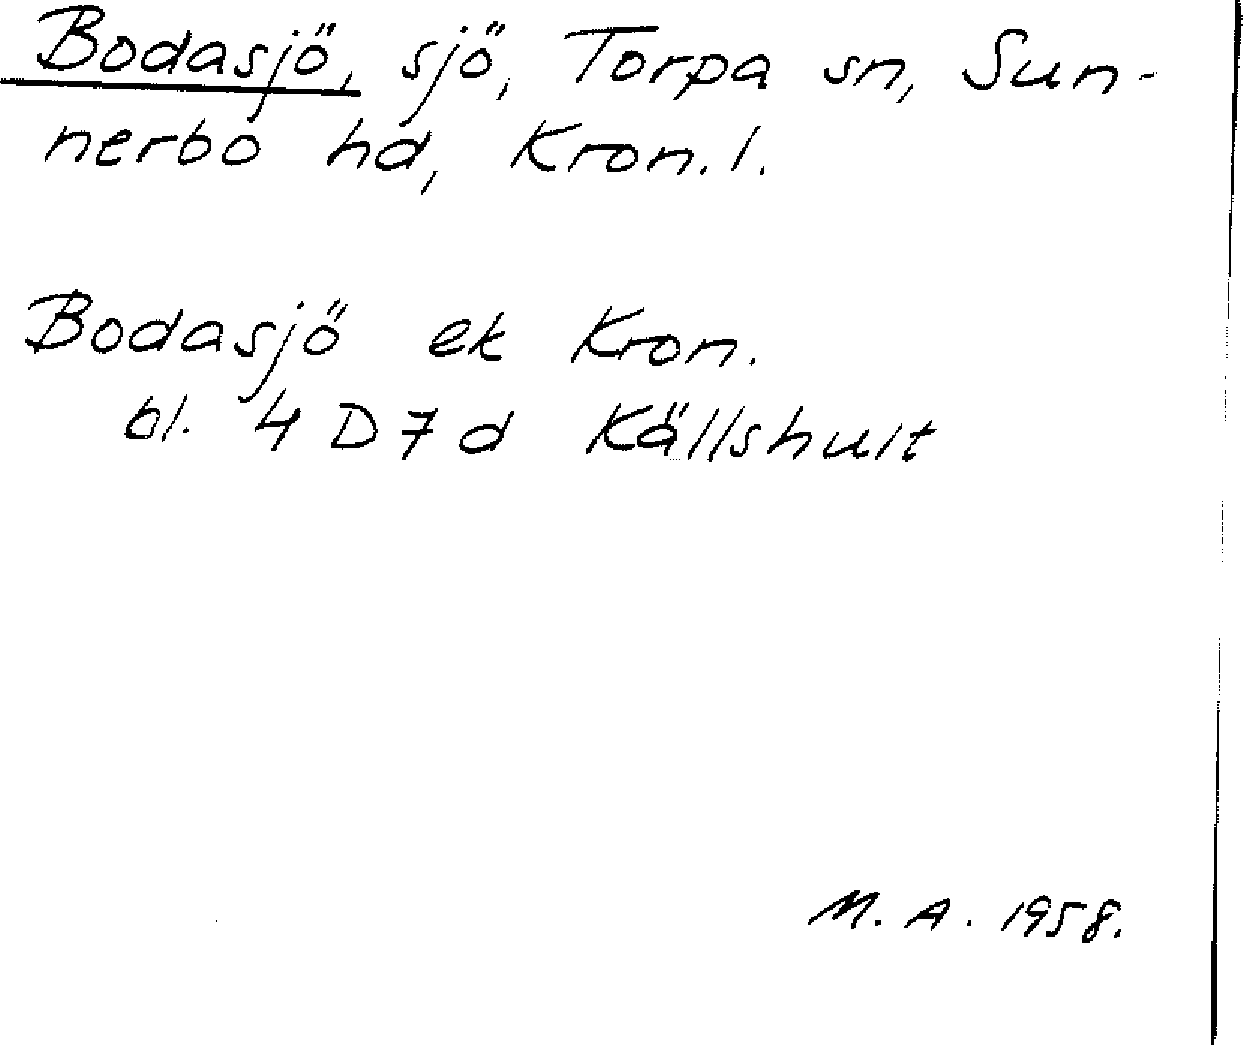 Bodasjö, sjö, Torpa sn, Sun-
nerbo hd, Kron. l.
Bodasjö ek Kron.
bl. 4 D 7 d Källshult
M. A. 1958.